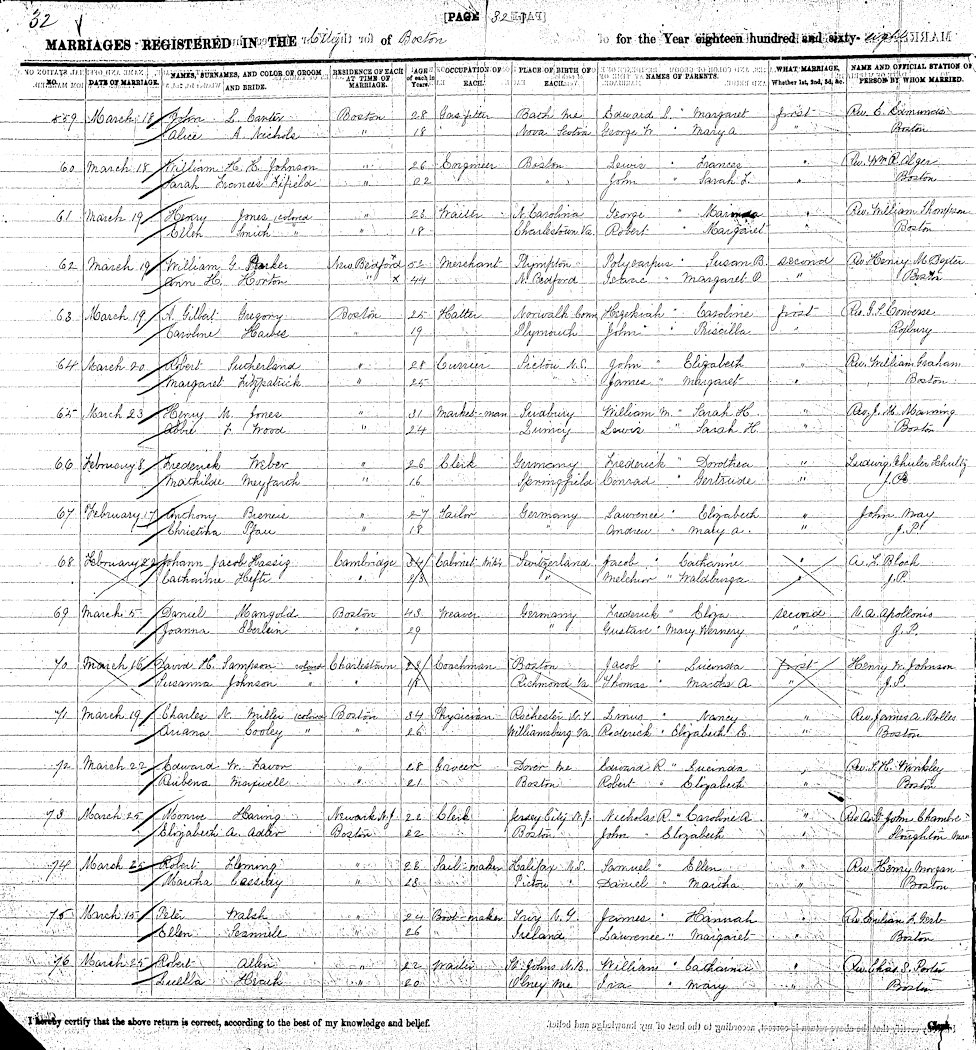 32
[PAGE 32]
MARRIAGES REGISTERED IN THE City of Boston for the Year eighteen hundred and sixty-eight
NO. DATE OF MARRIAGE. NAMES, SURNAMES, AND COLOR OF GROOM AND BRIDE. RESIDENCE OF EACH AT TIME OF MARRIAGE. AGE of each in Years. OCCUPATION OF EACH. PLACE OF BIRTH OF EACH. NAMES OF PARENTS. WHAT MARRIAGE, Whether 1st, 2nd, 3d, &c. NAME AND OFFICIAL STATION OF PERSON BY WHOM MARRIED.
559 March 18 John L. Canter Boston 28 Gasfitter Bath Me Edward L. " Margaret first Rev. E. Edmunds
Alice A. Nichols " 18 Nova Scotia George W. " Mary A " Boston
60 March 18 William H. H. Johnson " 26 Engineer Boston Lewis " Frances " Rev. Wm R. Alger
Sarah Frances Fifield " 22 " John " Sarah L. " Boston
61 March 19 Henry Jones (colored " 23 Waiter N. Carolina George " " Rev. William Thompson
Ellen Smith " " 18 Charlestown Va. Robert " Margaret " Boston
62 March 19 William G. Parker New Bedford x 52 Merchant Plympton Polycarpus " Susan B. second Rev Henry M Dexter
Ann H. Horton " x 44 N. Bedford Isaac " Margaret P. " Boston
63 March 19 A. Gilbert Gregory Boston 25 Hatter Norwalk Conn Hezekiah " Caroline first Rev. J. Converse
Caroline " 19 Plymouth John " Priscilla " Roxbury
64 March 20 Robert Sutherland " 28 Currier Pictou N.S. John " Elizabeth " Rev. William Graham
Margaret Fitzpatrick " 25 " James " Margaret " Boston
65 March 23 Henry M. Jones " 31 Market-man Sudbury William M. " Sarah H. " Rev. J. M. Manning
Abbie F. Wood " 24 Quincy Lewis " Sarah H. " Boston
66 February 8 Frederick Weber " 26 Clerk Germany Frederick " Dorothea " Ludwig
Mathilde Meyfarth " 16 Springfield Conrad " Gertrude " J.P.
67 February 17 Anthony " 27 Tailor Germany Lawrence " Elizabeth " John May
Christina Pfau " 18 " Andrew " Mary A. " J.P.
68 February 22 Johann Jacob Hassig Cambridge 34 Cabinet Mkr Switzerland Jacob " Catharine " A. L. Bloch
Catharine Hefti " 23 " Melchior " Waldburga " J.P.
69 March 5 Daniel Mangold Boston 43 Weaver Germany Frederick " Eliza second A. Apollonis
Joanna Eberlein " 29 " Gustave " Mary Wernery " J.P.
70 March 16 David H. Sampson colored Charlestown 23 Coachman Boston Jacob " Lucinda first Henry W. Johnson
Susanna Johnson " " Richmond Va Thomas " Martha A " J.P.
71 March 19 Charles N. Miller (colored Boston 34 Physician Rochester N.Y. Linus " Nancy " Rev. James A. Bolles
Ariana Cooley " " 26 Williamsburg Va. Roderick " Elizabeth E. " Boston
72 March 22 Edward W. Favor " 28 Grocer Dover Me Edward R " Lucinda " Rev. J. H. Winkley
Rubena Maxwell " 21 Boston Robert " Elizabeth " Boston
73 March 25 Monroe Haring Newark N.J 22 Clerk Jersey City N.J. Nicholas R. " Caroline A. " Rev A. St John Chambre
Elizabeth A. Adler Boston 22 Boston John " Elizabeth " Stoughton Mass
74 March 25 Robert Fleming " 26 Sail-maker Halifax N.S. Samuel " Ellen " Rev. Henry Morgan
Martha " 23 Pictou " Daniel " Martha " Boston
75 March 15 Peter Walsh " 24 Boot-maker Troy N.Y. James " Hannah " Rev Emilian
Ellen Scannell " 26 Ireland Lawrence " Margaret " Boston
76 March 25 Robert Allen " 22 Waiter St. Johns N.B. William " Catharine " Rev. Chas. S. Porter
Luella Heath " 20 Olney Me Ira " Mary " Boston
I hereby certify that the above return is correct, according to the best of my knowledge and belief. Clerk.